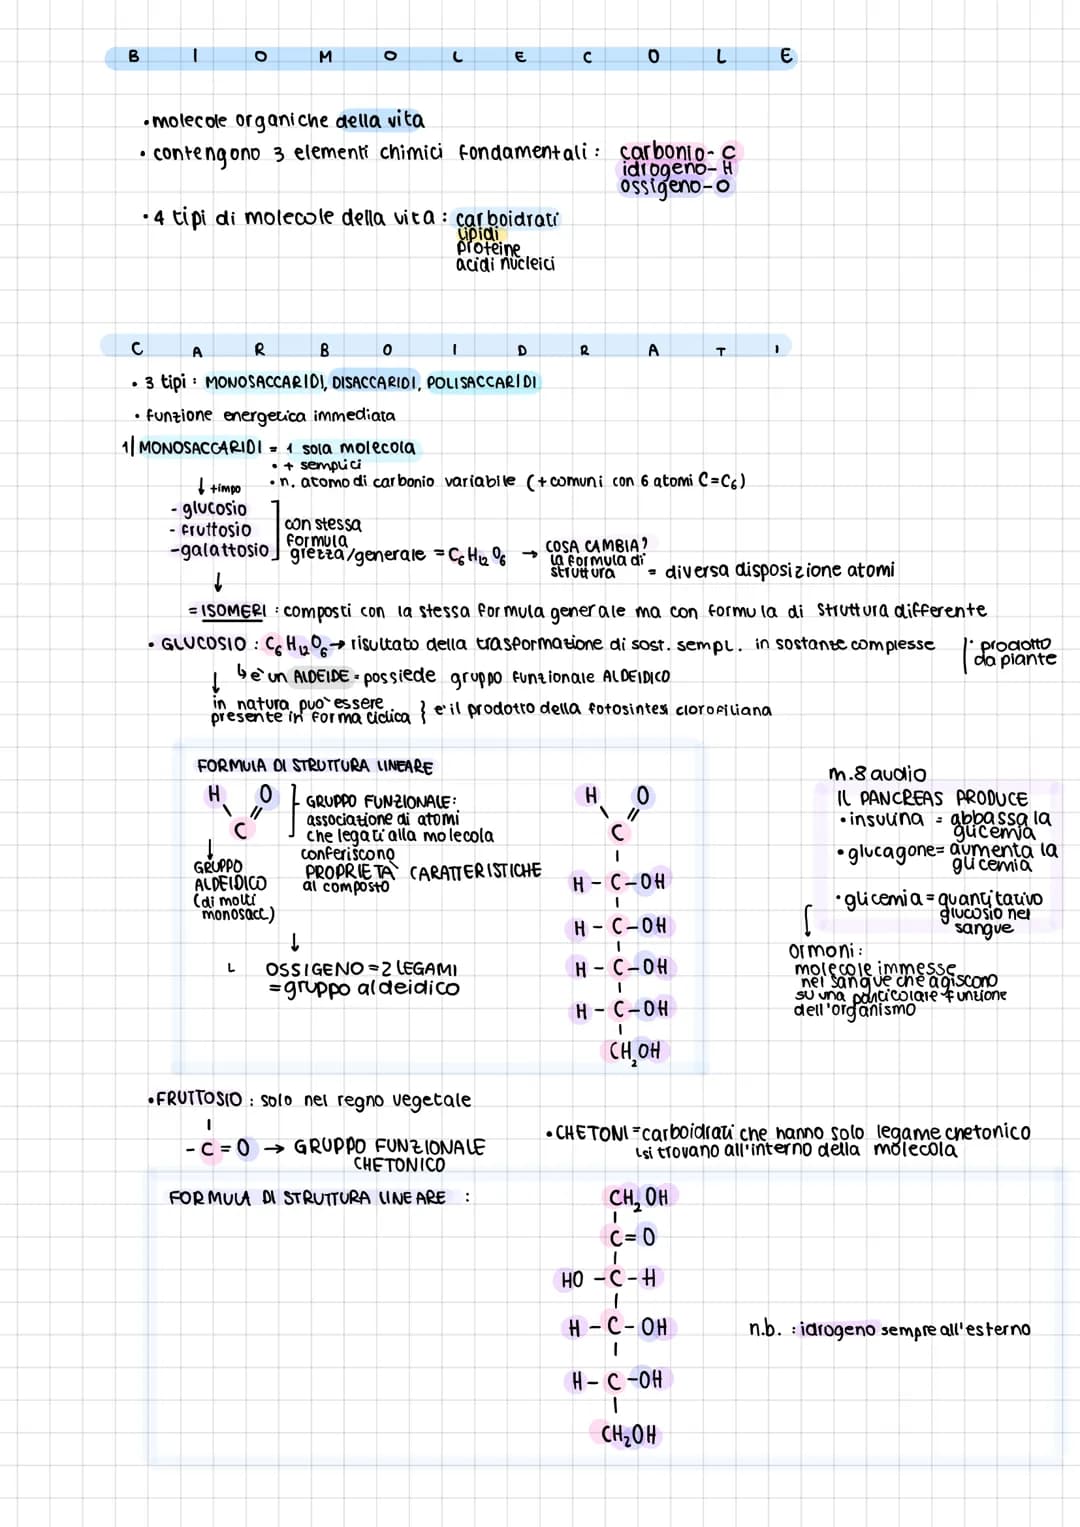 BIOMOLECOLE
•molecole organiche della vita
• contengono 3 elementi chimici fondamentali : carbonio- C
idrogeno- H
ossigeno-O
•4 tipi di molecole della vita : carboidrati
lipidi
proteine
acidi nucleici
CARBOIDRATI
• 3 tipi : MONOSACCARIDI, DISACCARIDI, POLISACCARIDI
• funzione energetica immediata
1| MONOSACCARIDI = 1 sola molecola
• + semplici
•n. atomo di carbonio variabile (+comuni con 6 atomi C=C₆)
↓ +impo
- glucosio
- fruttosio
-galattosio
con stessa
formula
grezza/generale = C₆H₁₂O₆ →
COSA CAMBIA?
la formula di
struttura = diversa disposizione atomi
↓
= ISOMERI : composti con la stessa formula generale ma con formula di struttura differente
• GLUCOSIO : C₆H₁₂O₆ → risultato della trasformazione di sost. sempl. in sostanze complesse
• prodotto
da piante
↳ è un ALDEIDE = possiede gruppo funzionale ALDEIDICO
↓
in natura può essere
presente in forma ciclica } è il prodotto della fotosintesi clorofiliana
FORMULA DI STRUTTURA LINEARE
H O
\ //
C
↓
GRUPPO
ALDEIDICO
(di molti
monosacc.)
GRUPPO FUNZIONALE:
associazione di atomi
che legati alla molecola
conferiscono
PROPRIETÀ CARATTERISTICHE
al composto
↓
L OSSIGENO = 2 LEGAMI
=gruppo aldeidico
H O
\ //
C
|
H - C-OH
|
H - C-OH
|
H - C-OH
|
H - C-OH
|
CH₂OH
m.8 audio
IL PANCREAS PRODUCE
•insulina = abbassa la
glicemia
•glucagone= aumenta la
glicemia
•glicemia = quantitativo
glucosio nel
sangue
ormoni :
molecole immesse
nel sangue che agiscono
su una particolare funzione
dell'organismo
•FRUTTOSIO : solo nel regno vegetale
|
- C = O → GRUPPO FUNZIONALE
CHETONICO
• CHETONI =carboidrati che hanno solo legame chetonico
↳si trovano all'interno della molecola
FORMULA DI STRUTTURA LINEARE :
CH₂OH
|
C= O
|
HO -C-H
|
H -C- OH
|
H- C -OH
|
CH₂OH
n.b. : idrogeno sempre all'esterno